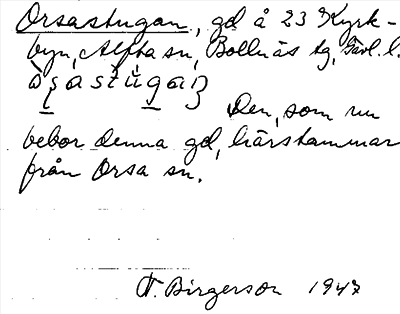 Orsastugan, gd å 23 Kyrk-
byn, Alfta sn, Bollnäs tg, Gävl. l.
Den, som nu
bebor denna gd, härstammar
från Orsa sn.
T. Birgerson 1947